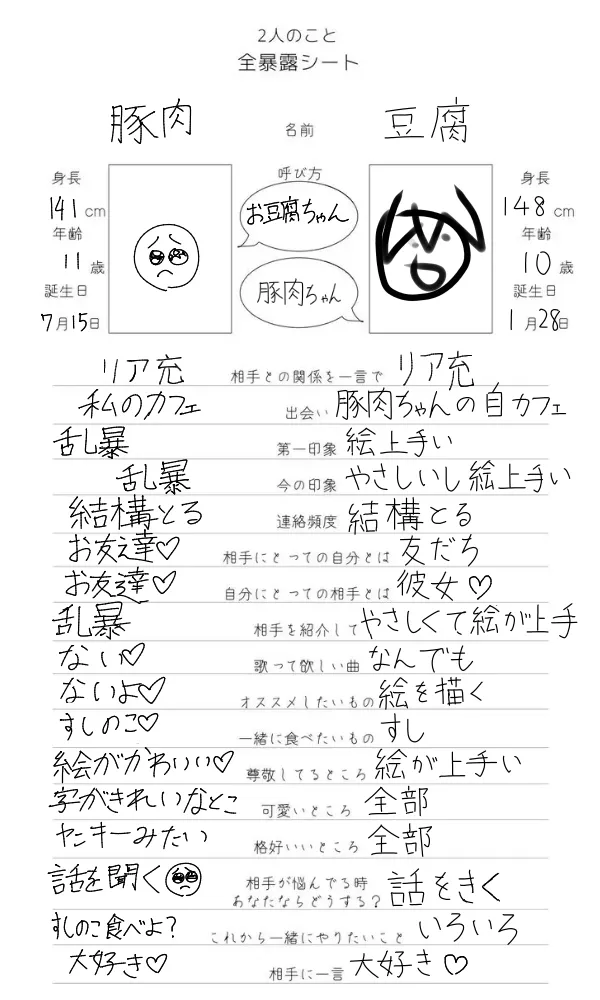 2人のこと
全暴露シート
豚肉 名前 豆腐
呼び方
お豆腐ちゃん
豚肉ちゃん
身長
141cm
年齢
11歳
誕生日
7月15日
身長
148cm
年齢
10歳
誕生日
1月28日
リア充 相手との関係を一言で リア充
私のカフェ 出会い 豚肉ちゃんの自カフェ
乱暴 第一印象 絵上手い
乱暴 今の印象 やさしいし絵上手い
結構とる 連絡頻度 結構とる
お友達♡ 相手にとっての自分とは 友だち
お友達♡ 自分にとっての相手とは 彼女♡
乱暴 相手を紹介して やさしくて絵が上手
ない♡ 歌って欲しい曲 なんでも
ないよ♡ オススメしたいもの 絵を描く
すしのこ♡ 一緒に食べたいもの すし
絵がかわいい♡ 尊敬してるところ 絵が上手い
字がきれいなとこ 可愛いところ 全部
ヤンキーみたい 格好いいところ 全部
話を聞く🥺 相手が悩んでる時 話をきく
あなたならどうする?
すしのこ食べよ? これから一緒にやりたいこと いろいろ
大好き♡ 相手に一言 大好き♡